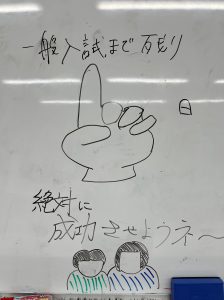 一般入試まで残り
日
絶対に
成功させようネ〜